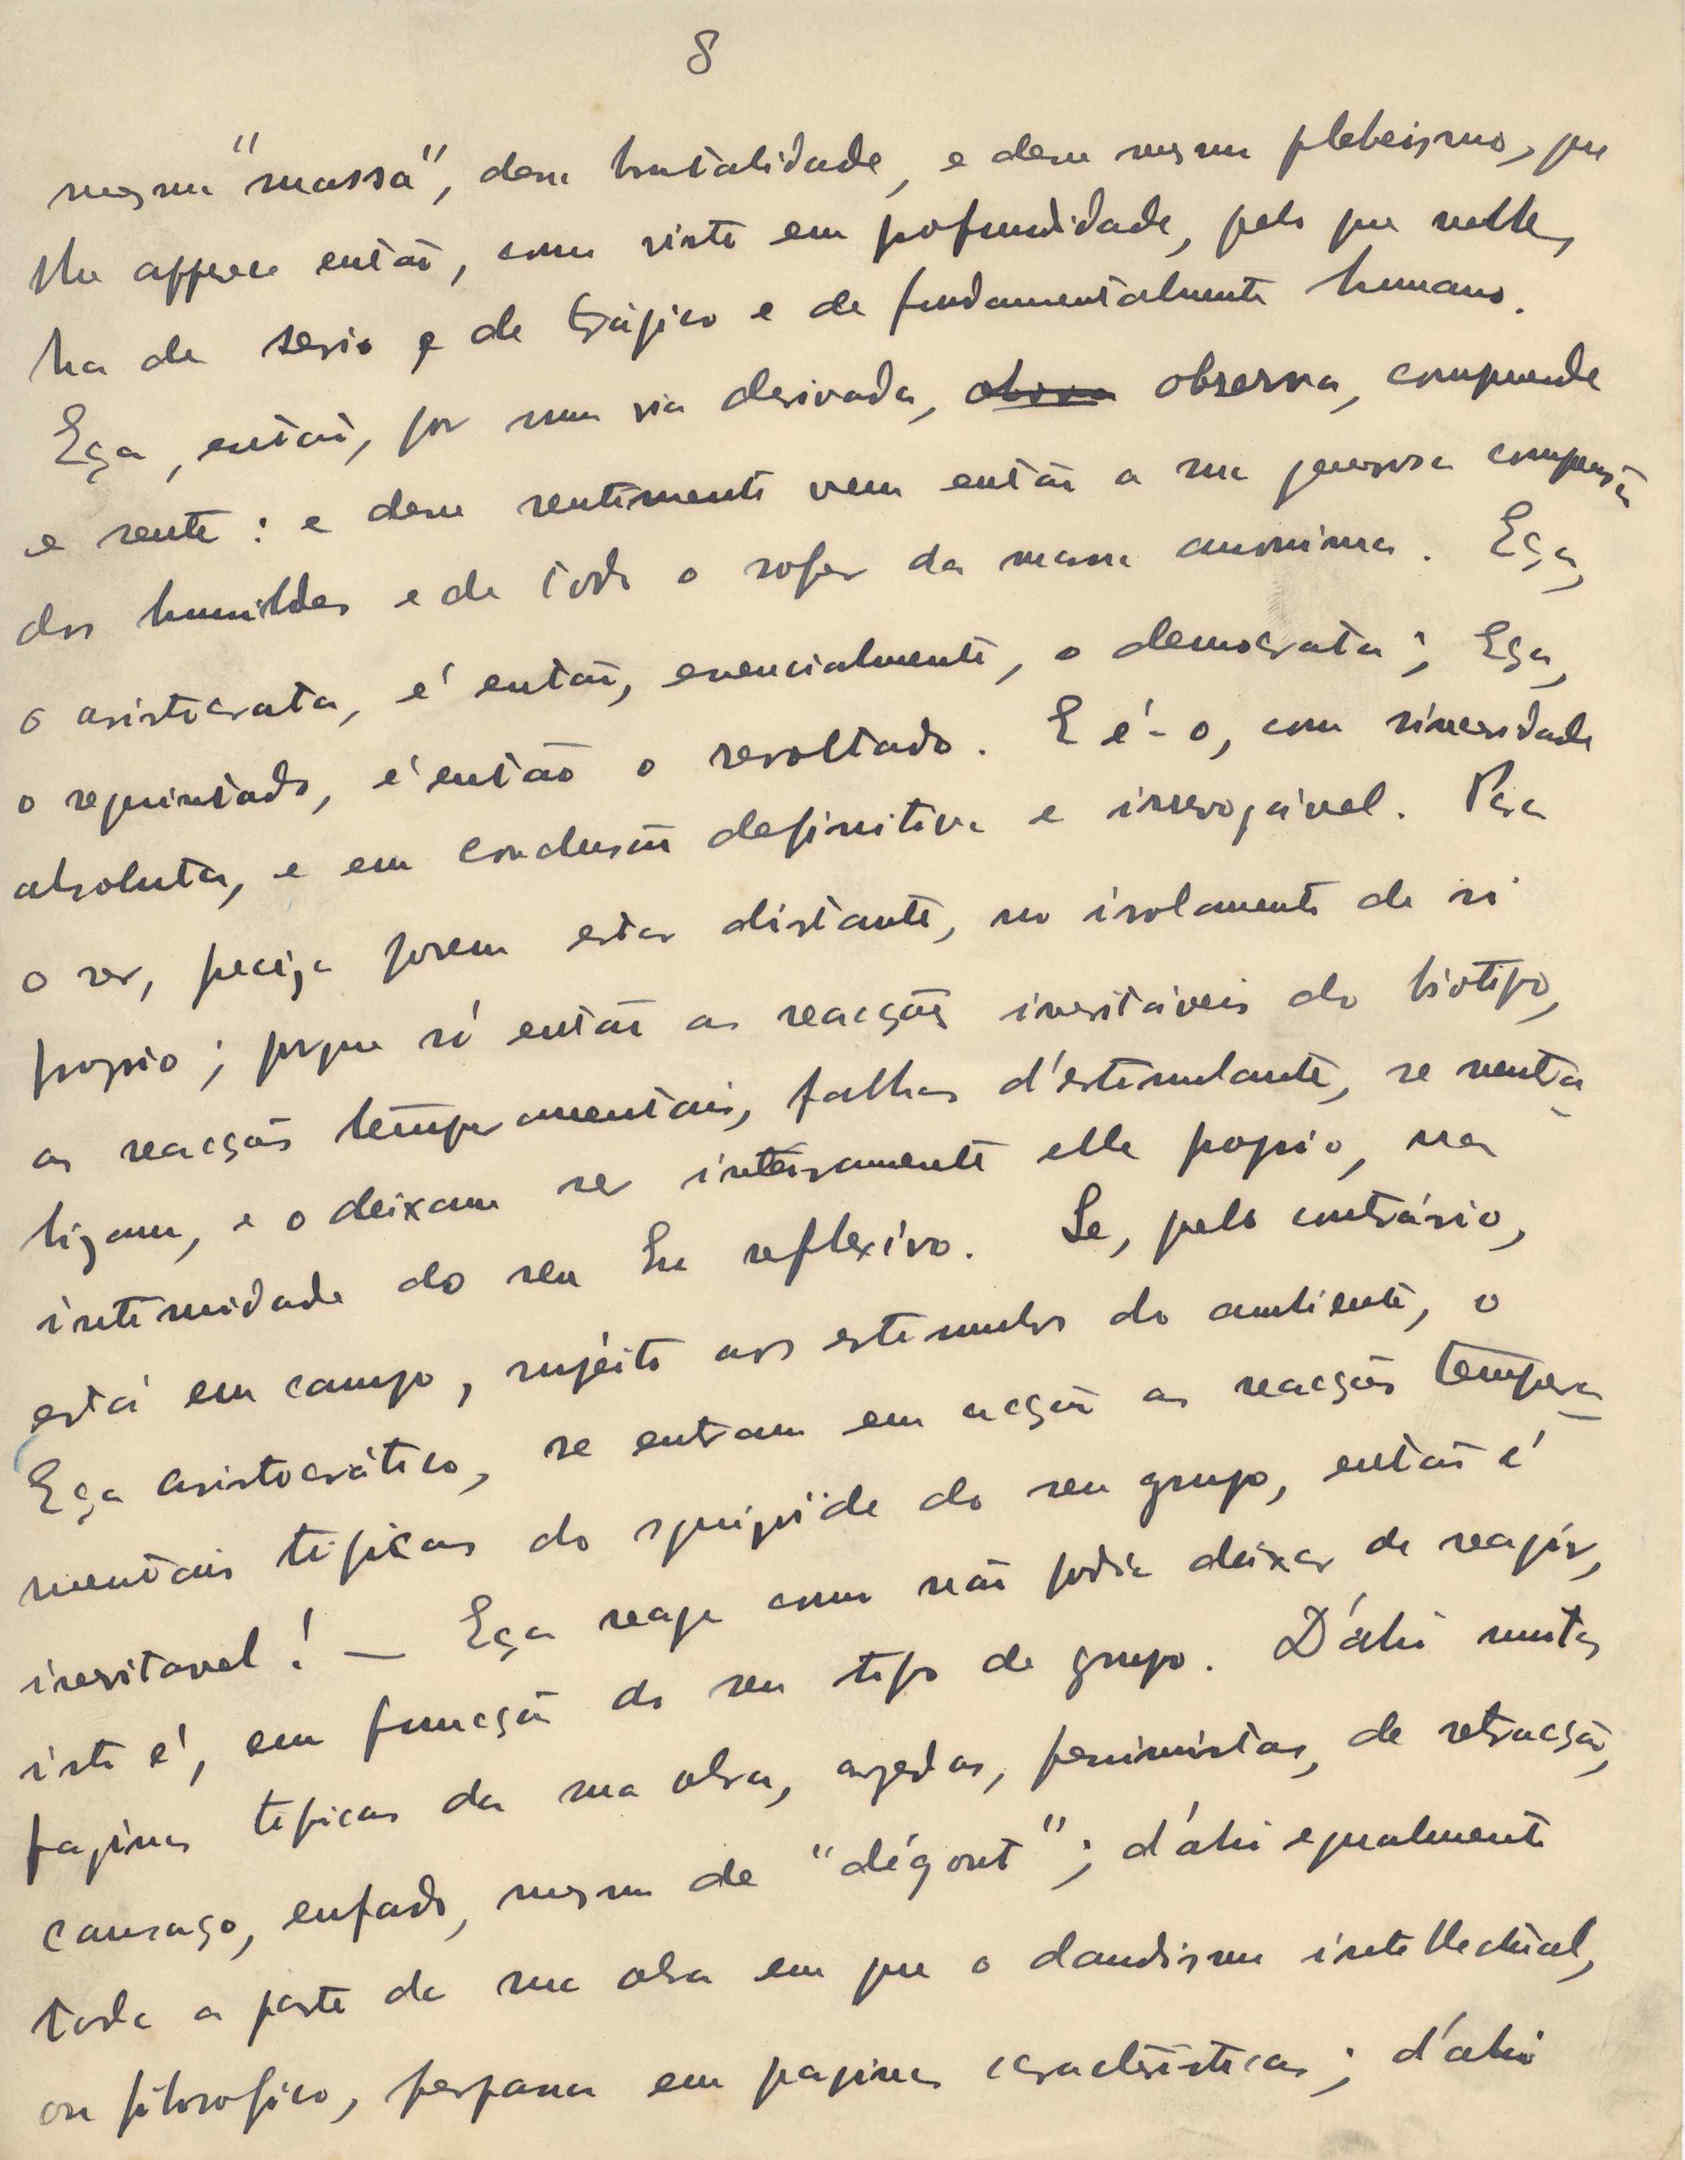 8
mesma "massa", dessa brutalidade, e desse mesmo plebeismo, que
lhe apparece então, como visto em profundidade, pelo que nelle
ha de serio e de trágico e de fundamentalmente humano.
Eça, então, por uma via derivada, observa, comprehende
e sente: e desse sentimento vem então a sua generosa compreensão
dos humildes e de todo o sofrer da massa anonima. Eça,
o aristocrata, é então, essencialmente, o democrata; Eça,
o requintado, é então o revoltado. E é-o, com sinceridade
absoluta, e em conclusão definitiva e irrevogável. Para
o ser, precisa porem estar distante, no isolamento de si
proprio; porque só então as reacções inevitáveis do biotipo,
as reacções temperamentais, falhas d'estimulante, se neutra-
lizam, e o deixam ser inteiramente elle proprio, na
intimidade do seu Eu reflexivo. Se, pelo contrário,
está em campo, sujeito aos estimulos do ambiente, o
Eça aristocrático, se entram em acção as reacções tempera-
mentais tipicas do esquizóide do seu grupo, então é
inevitavel! — Eça reage como não podia deixar de reagir,
isto é, em funcção do seu tipo de grupo. D'áhi muitas
paginas tipicas da sua obra, azedas, pessimistas, de retracção,
cansaço, enfado, mesmo de "dégout"; d'áhi egualmente
toda a parte da sua obra em que o dandismo intellectual,
ou filosofico, perpassa em paginas caracteristicas; d'áhi